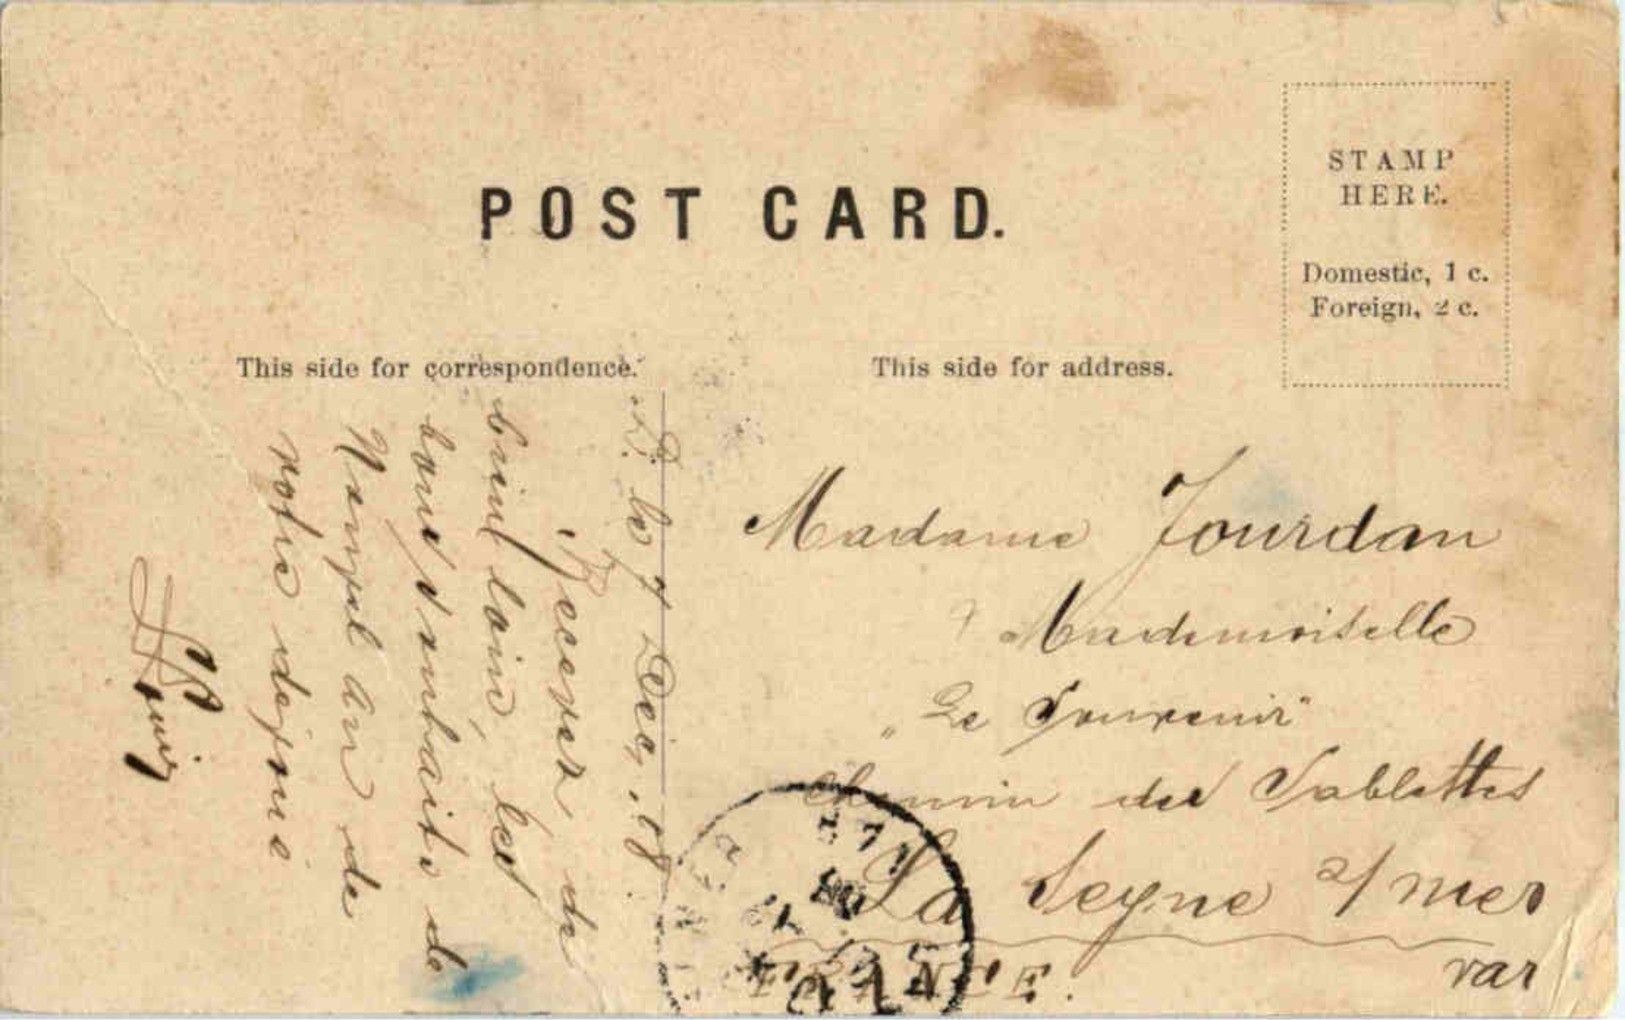 POST CARD.
STAMP
HERE.
Domestic, 1 c.
Foreign, 2 c.
This side for correspondence.
This side for address.
le 7 Dec. 08.
Recevez de
bien loin, les
bons souhaits de
Nouvel an de
votre
Louis
Madame Jourdan
Mademoiselle
"Le Souvenir"
Chemin des Sablettes
La Seyne s/mer
Var
FRANCE.